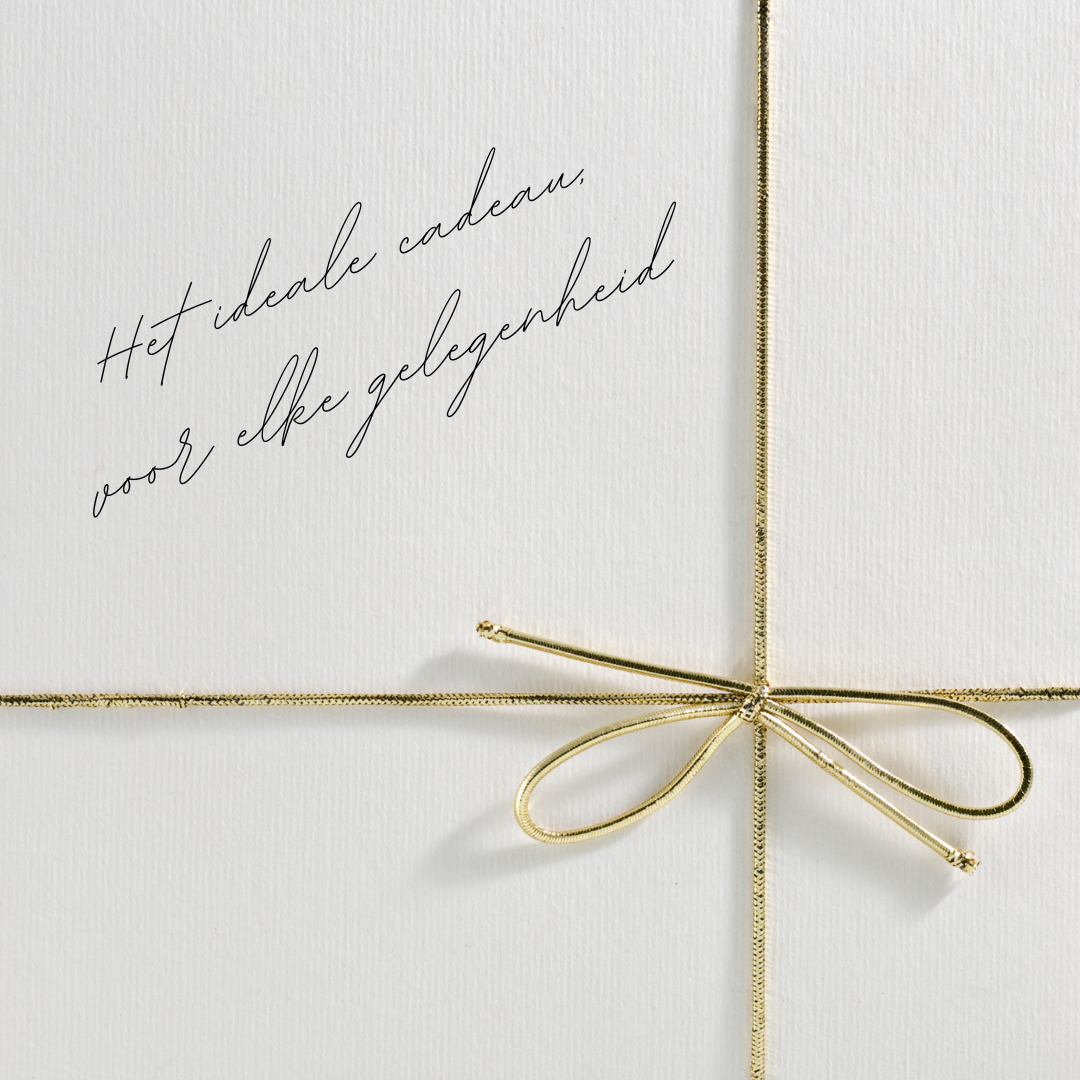 Het ideale cadeau,
voor elke gelegenheid